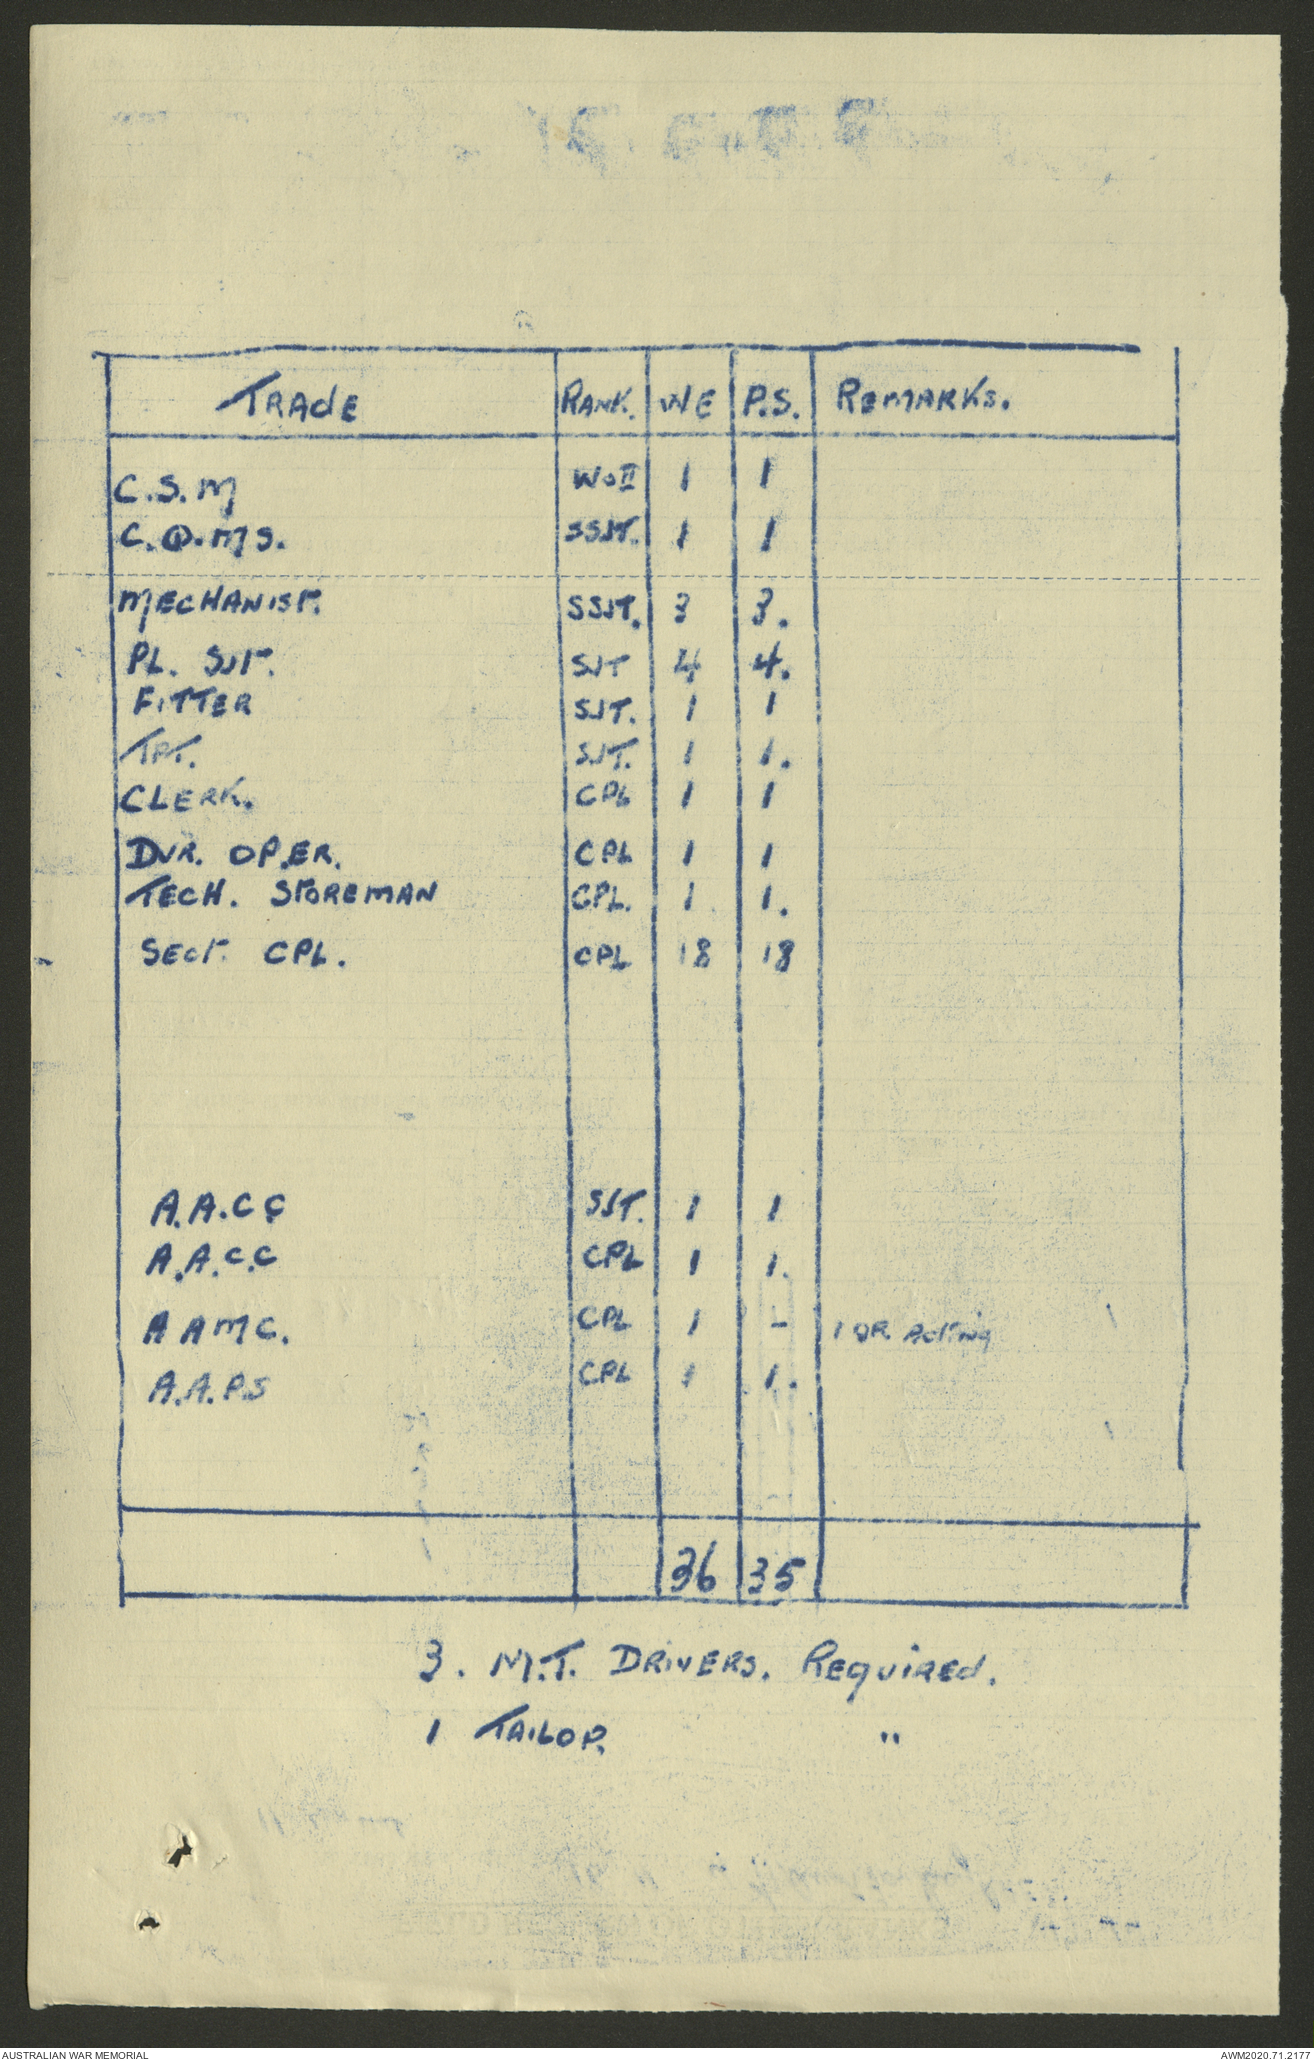 TRADE RANK. WE P.S. REMARKS.
C.S.M WOII 1 1
C.Q.MS. SSJT. 1 1
MECHANIST. SSJT. 3 3.
PL. SJT. SJT 4 4.
FITTER SJT. 1 1
TPT. SJT. 1 1.
CLERK. CPL 1 1
DVR. OPER. CPL 1 1
TECH. STOREMAN CPL. 1 1.
SECT. CPL. CPL 18 18
A.A.C C SJT. 1 1
A.A.C.C CPL 1 1.
A A M C. CPL 1 - 1 OR Acting
A.A.P.S CPL 1 1.
36 35
3. M.T. DRIVERS. REQUIRED.
1 TAILOR. "
AUSTRALIAN WAR MEMORIAL AWM2020.71.2177